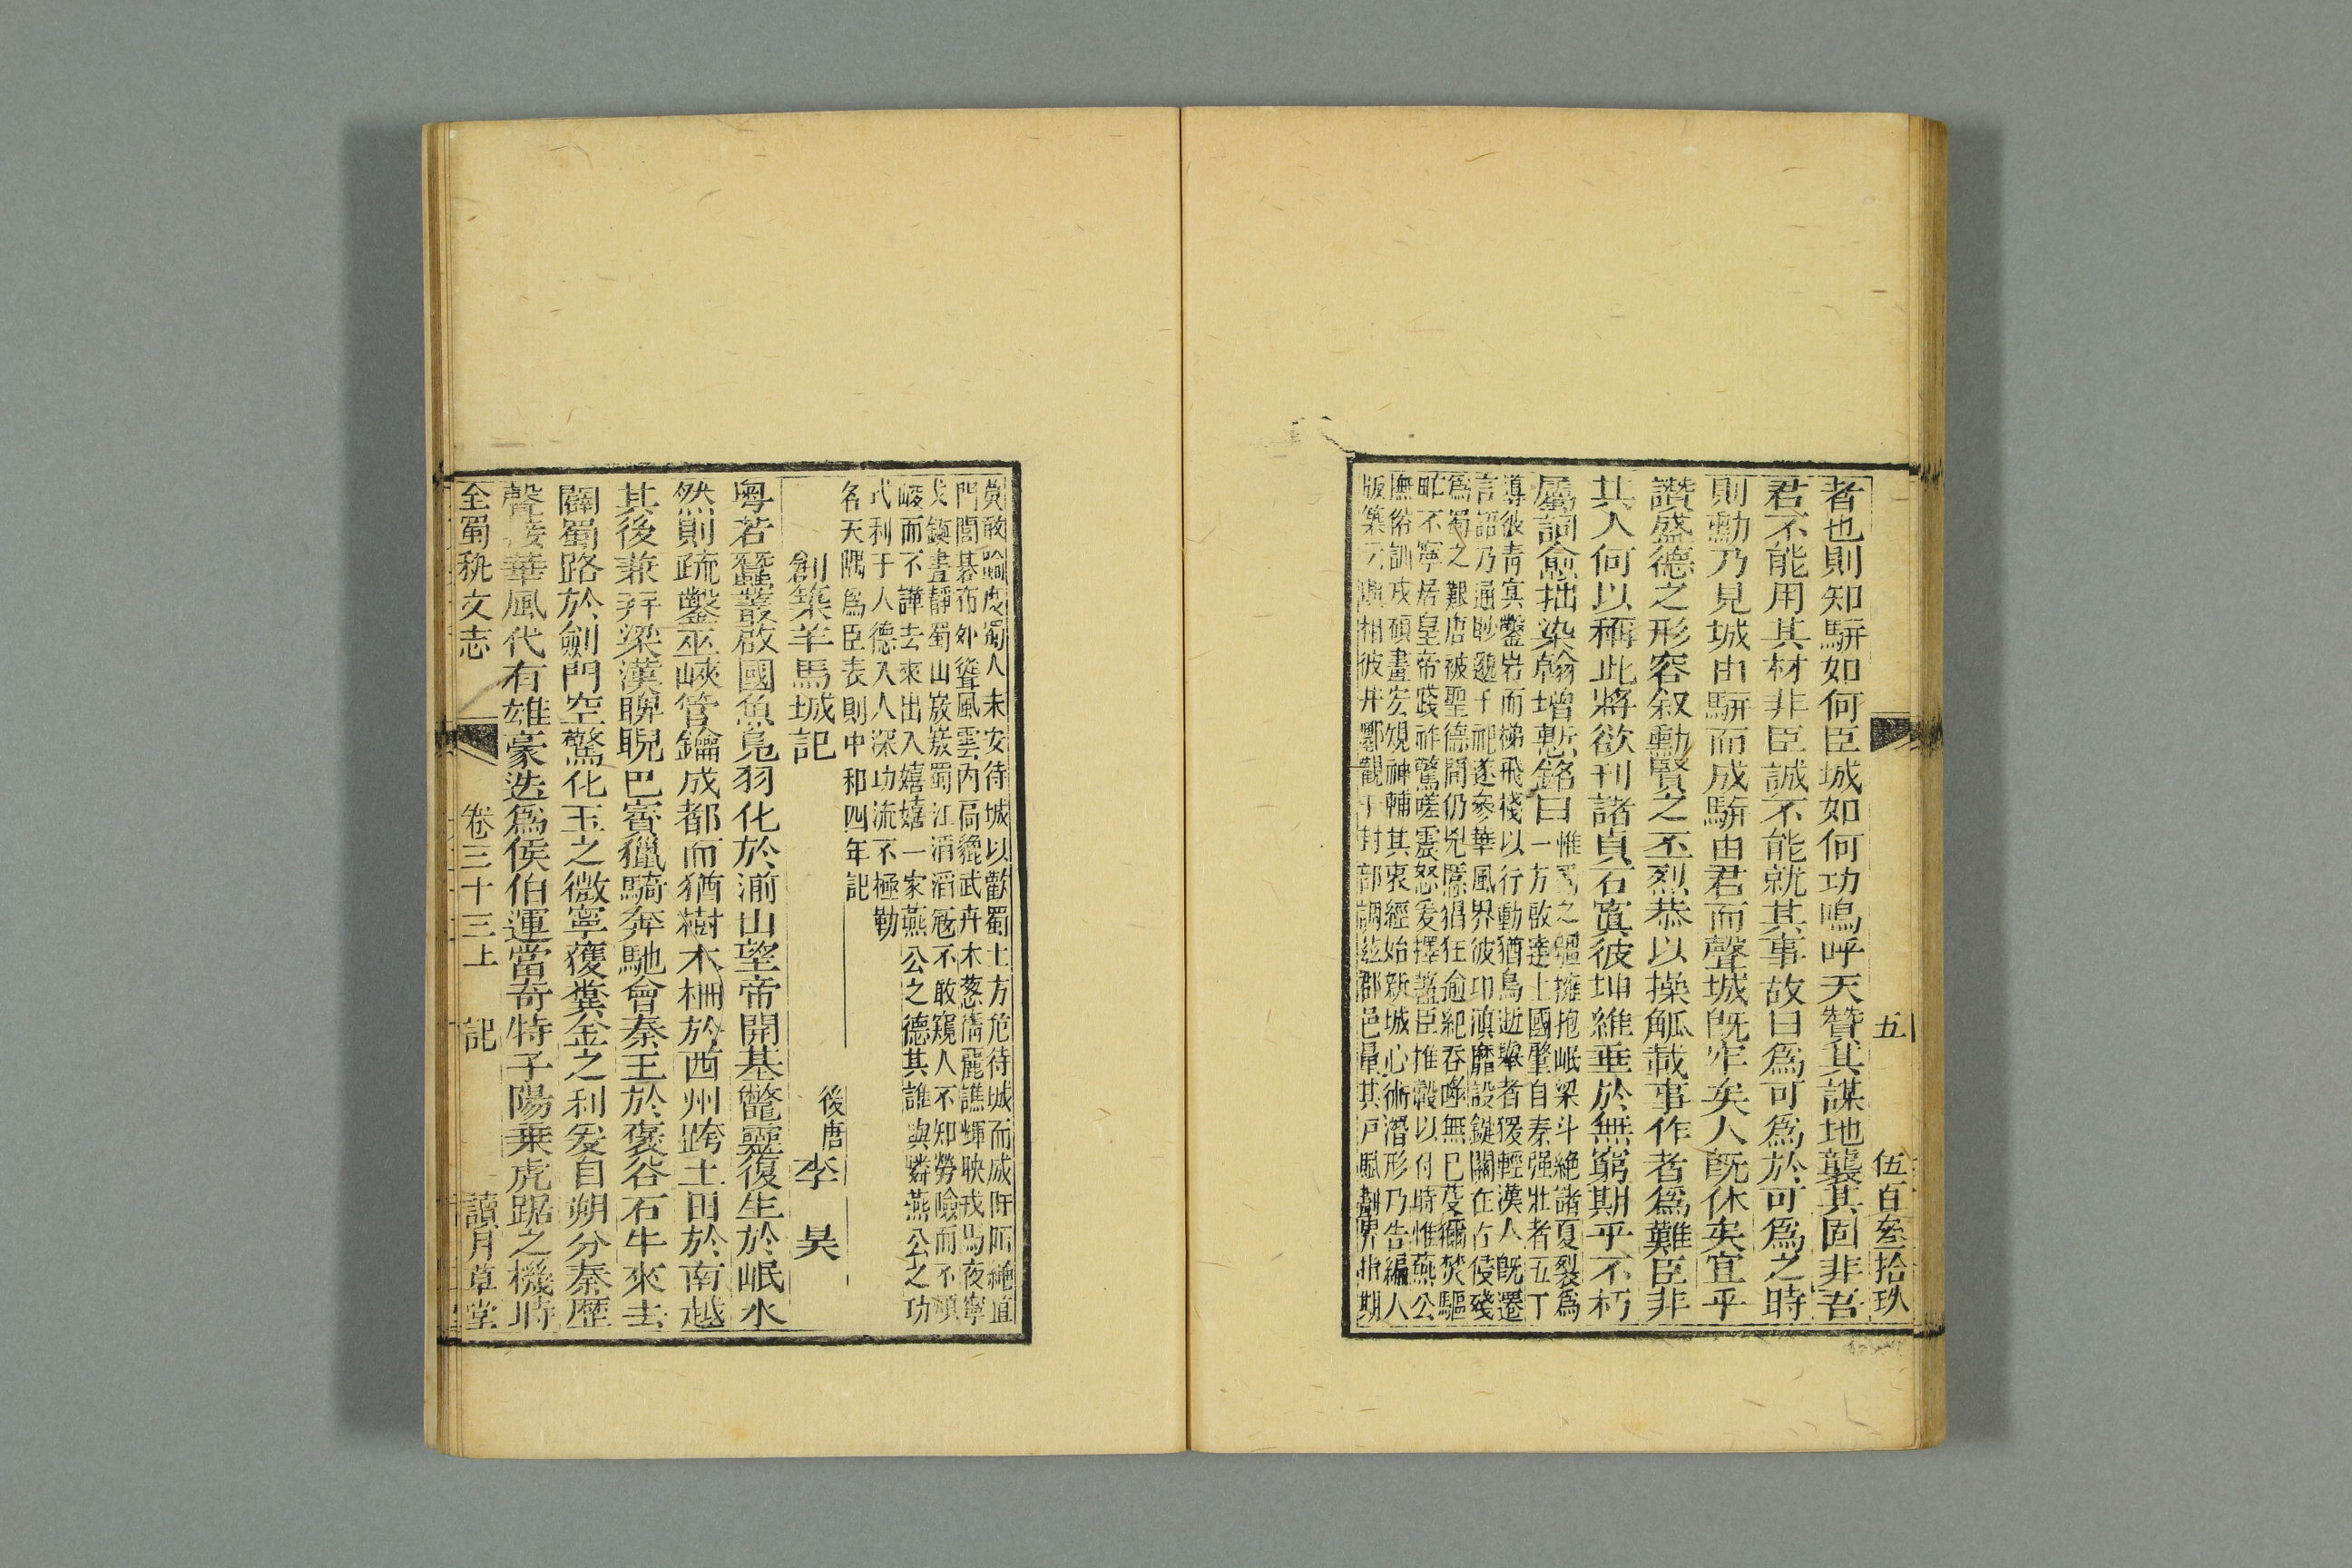 五　伍百叁拾玖
者也則知駢如何臣城如何功嗚呼天贊其謀地襲其固非吾
君不能用其材非臣誠不能就其事故曰爲可爲於可爲之時
則勳乃見城由駢而成駢由君而聲城旣牢矣人旣休矣宜乎
讚盛德之形容叙勳賢之丕烈恭以操觚載事作者爲難臣非
其人何以稱此將欲刊諸貞石寘彼坤維垂於無窮期乎不朽
屬詞愈拙染翰增慙銘曰
惟蜀之疆擁抱岷梁斗絶諸夏裂爲
一方啟達土國肇自秦强壯者五丁
導彼靑冥鑿岩而梯飛棧以行動猶鳥逝舉者猨輕漢人旣遷
言語乃通眇邈千祀遂參華風界彼卭滇靡設鍵關在古侵殘
爲蜀之艱唐被聖德閒仍兇慝猖狂逾紀吞噬無已蔓獮焚驅
甿不寧居皇帝踐祚驚嗟震怒爰擇藎臣推轂以付時惟燕公
撫俗訓戎碩畫宏規神輔其衷經始新城心術潛形乃吿編人
版築 興相彼井鄽觀于封部調兹郡邑量其戶賦 界指期
敢踰度蜀人未安待城以歡蜀土方危待城而威 繩直
門閭碁布外聳風雲内扃貔武卉木葱蒨麗譙輝映戎馬夜寧
戈鋋晝靜蜀山峩峩蜀江滔滔寇不敢窺人不知勞險而不頹
峻而不譁去來出入嬉嬉一家燕公之德其誰與鄰燕公之功
式利于人德入人深功流不極勒
名天隅爲臣表則中和四年記
創築羊馬城記　後唐李　昊
粤若蠶叢啟國魚鳧羽化於湔山望帝開基鼈靈復生於岷水
然則疏鑿巫峽管鑰成都而猶樹木柵於西州跨土田於南越
其後兼幷梁漢睥睨巴賨獵騎奔馳會秦王於褒谷石牛來去
闢蜀路於劍門空驚化玉之微寧獲糞金之利爰自朔分秦歷
聲接華風代有雄豪迭爲侯伯運當奇特子陽乗虎踞之機時
全蜀秇文志　卷三十三上　記　讀月草堂